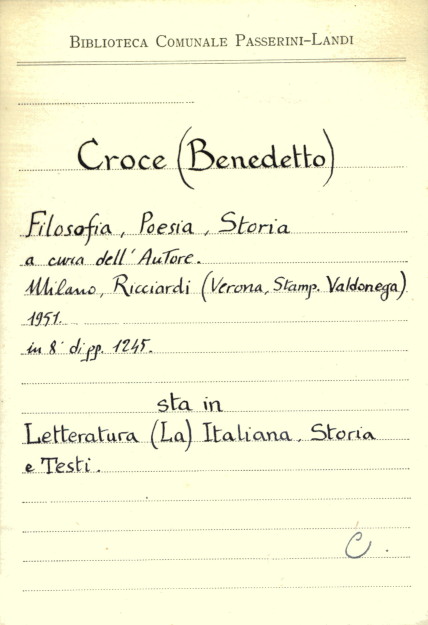 BIBLIOTECA COMUNALE PASSERINI-LANDI
Croce (Benedetto)
Filosofia, Poesia, Storia
a cura dell'Autore.
Milano, Ricciardi (Verona, Stamp. Valdonega)
1951.
in 8° di pp. 1245.
sta in
Letteratura (La) Italiana. Storia
e Testi.
C.